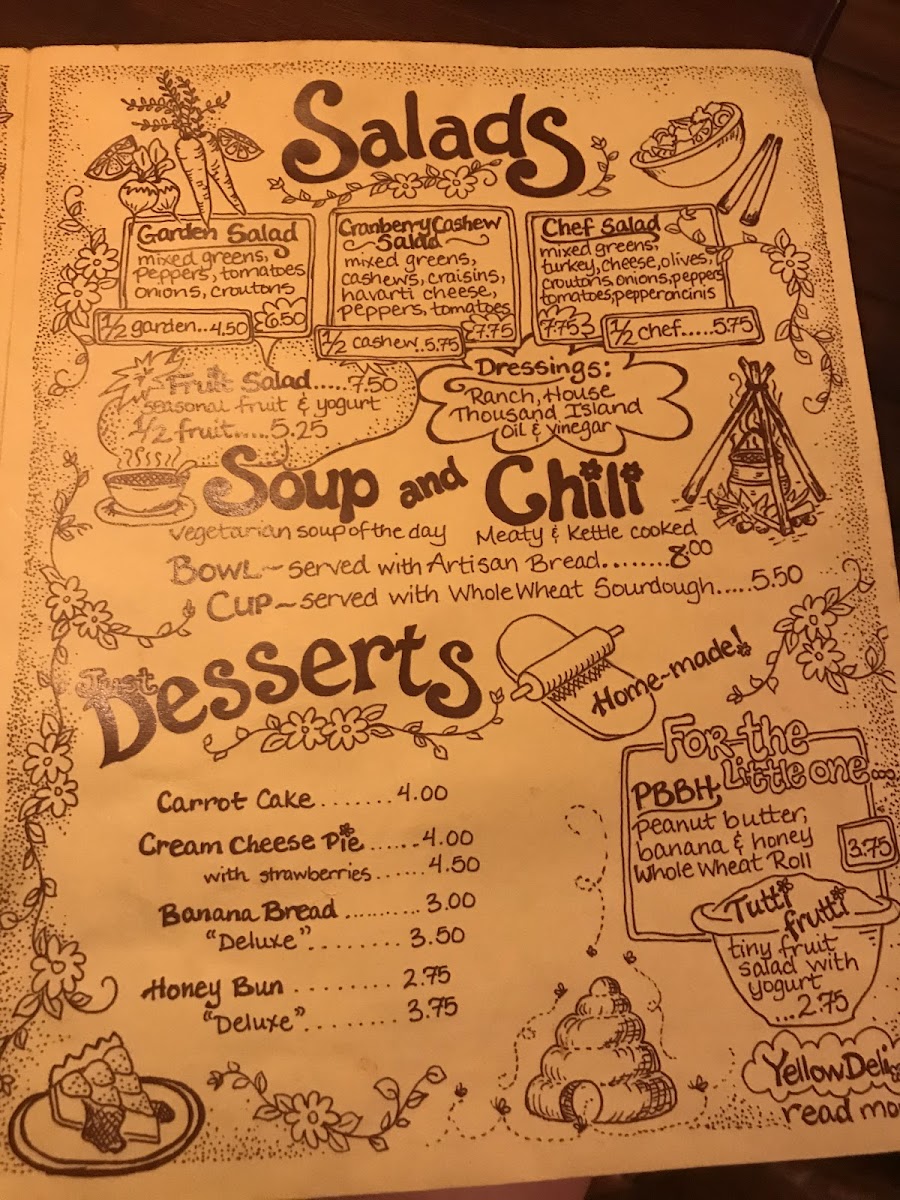 Salads
Garden Salad
mixed greens,
peppers, tomatoes
onions, croutons
6.50
1/2 garden..4.50
Cranberry Cashew
Salad
mixed greens,
cashews, craisins,
havarti cheese,
peppers, tomatoes
7.75
1/2 cashew..5.75
Chef Salad
mixed greens,
turkey, cheese, olives,
croutons, onions, peppers
tomatoes, pepperoncinis
7.75
1/2 chef.....5.75
Fruit Salad.....7.50
seasonal fruit & yogurt
1/2 fruit.....5.25
Dressings:
Ranch, House
Thousand Island
Oil & Vinegar
Soup and Chili
vegetarian soup of the day
Meaty & Kettle cooked
Bowl~served with Artisan Bread........8.00
Cup~served with Whole Wheat Sourdough.....5.50
Just
Desserts
Home-made!
Carrot Cake........4.00
Cream Cheese Pie......4.00
with strawberries......4.50
Banana Bread..........3.00
"Deluxe".........3.50
Honey Bun.........2.75
"Deluxe".........3.75
For the
Little one...
PBBH
peanut butter,
banana & honey
Whole Wheat Roll
3.75
Tutti
frutti
tiny fruit
salad with
yogurt
...2.75
Yellow Deli
read mo